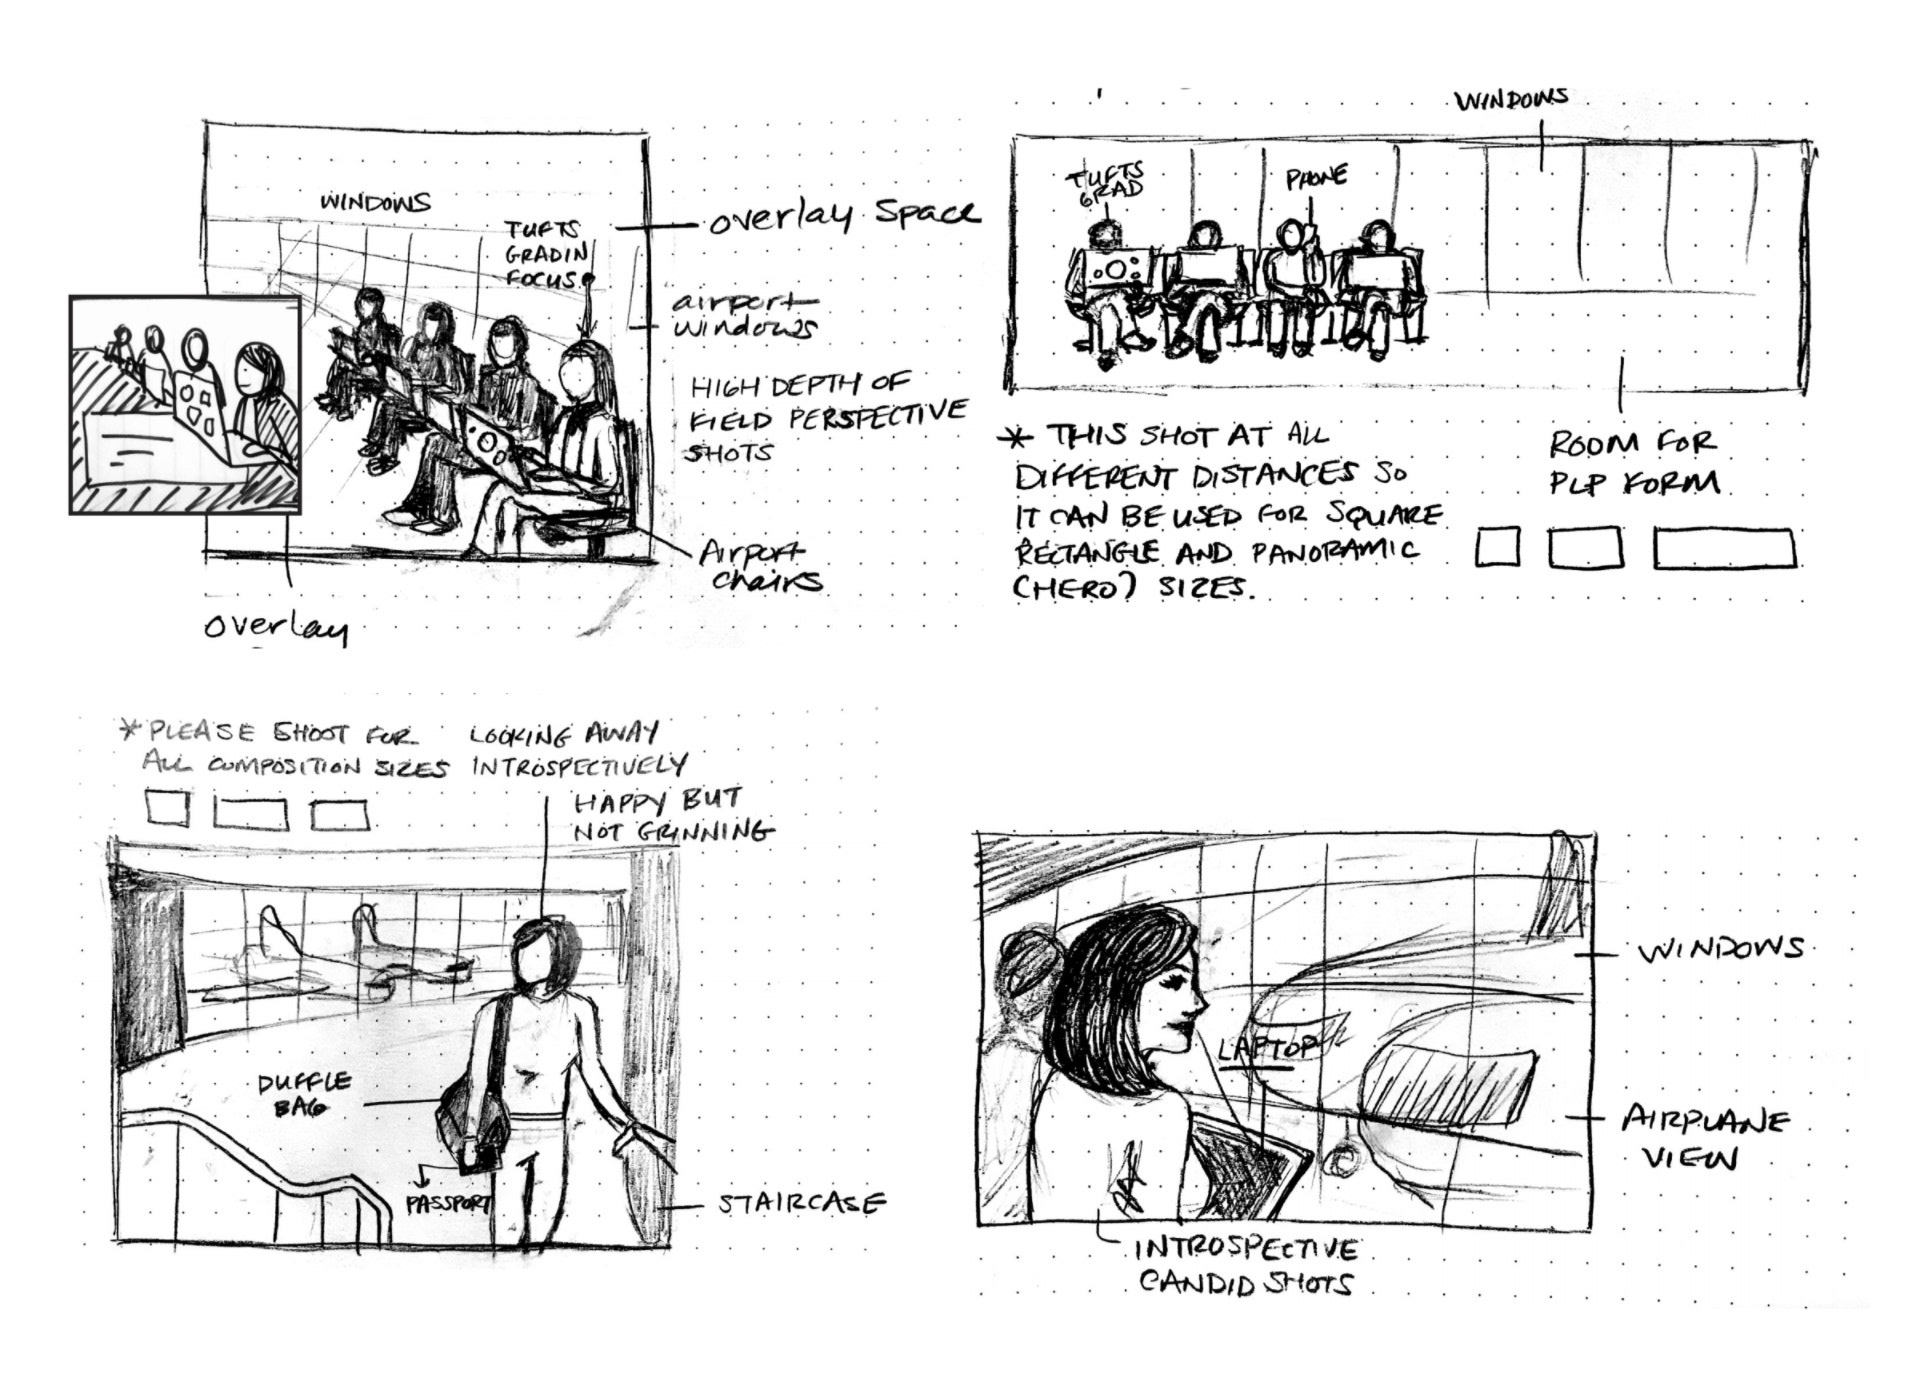 WINDOWS
TUFTS
GRAD IN
FOCUS
overlay space
airport
windows
HIGH DEPTH OF
FIELD PERSPECTIVE
SHOTS
Airport
chairs
overlay
WINDOWS
TUFTS
GRAD
PHONE
* THIS SHOT AT ALL
DIFFERENT DISTANCES SO
IT CAN BE USED FOR SQUARE
RECTANGLE AND PANORAMIC
(HERO) SIZES.
ROOM FOR
PLP FORM
* PLEASE SHOOT FOR
ALL COMPOSITION SIZES
LOOKING AWAY
INTROSPECTIVELY
HAPPY BUT
NOT GRINNING
DUFFLE
BAG
PASSPORT
STAIRCASE
LAPTOP
WINDOWS
AIRPLANE
VIEW
INTROSPECTIVE
CANDID SHOTS